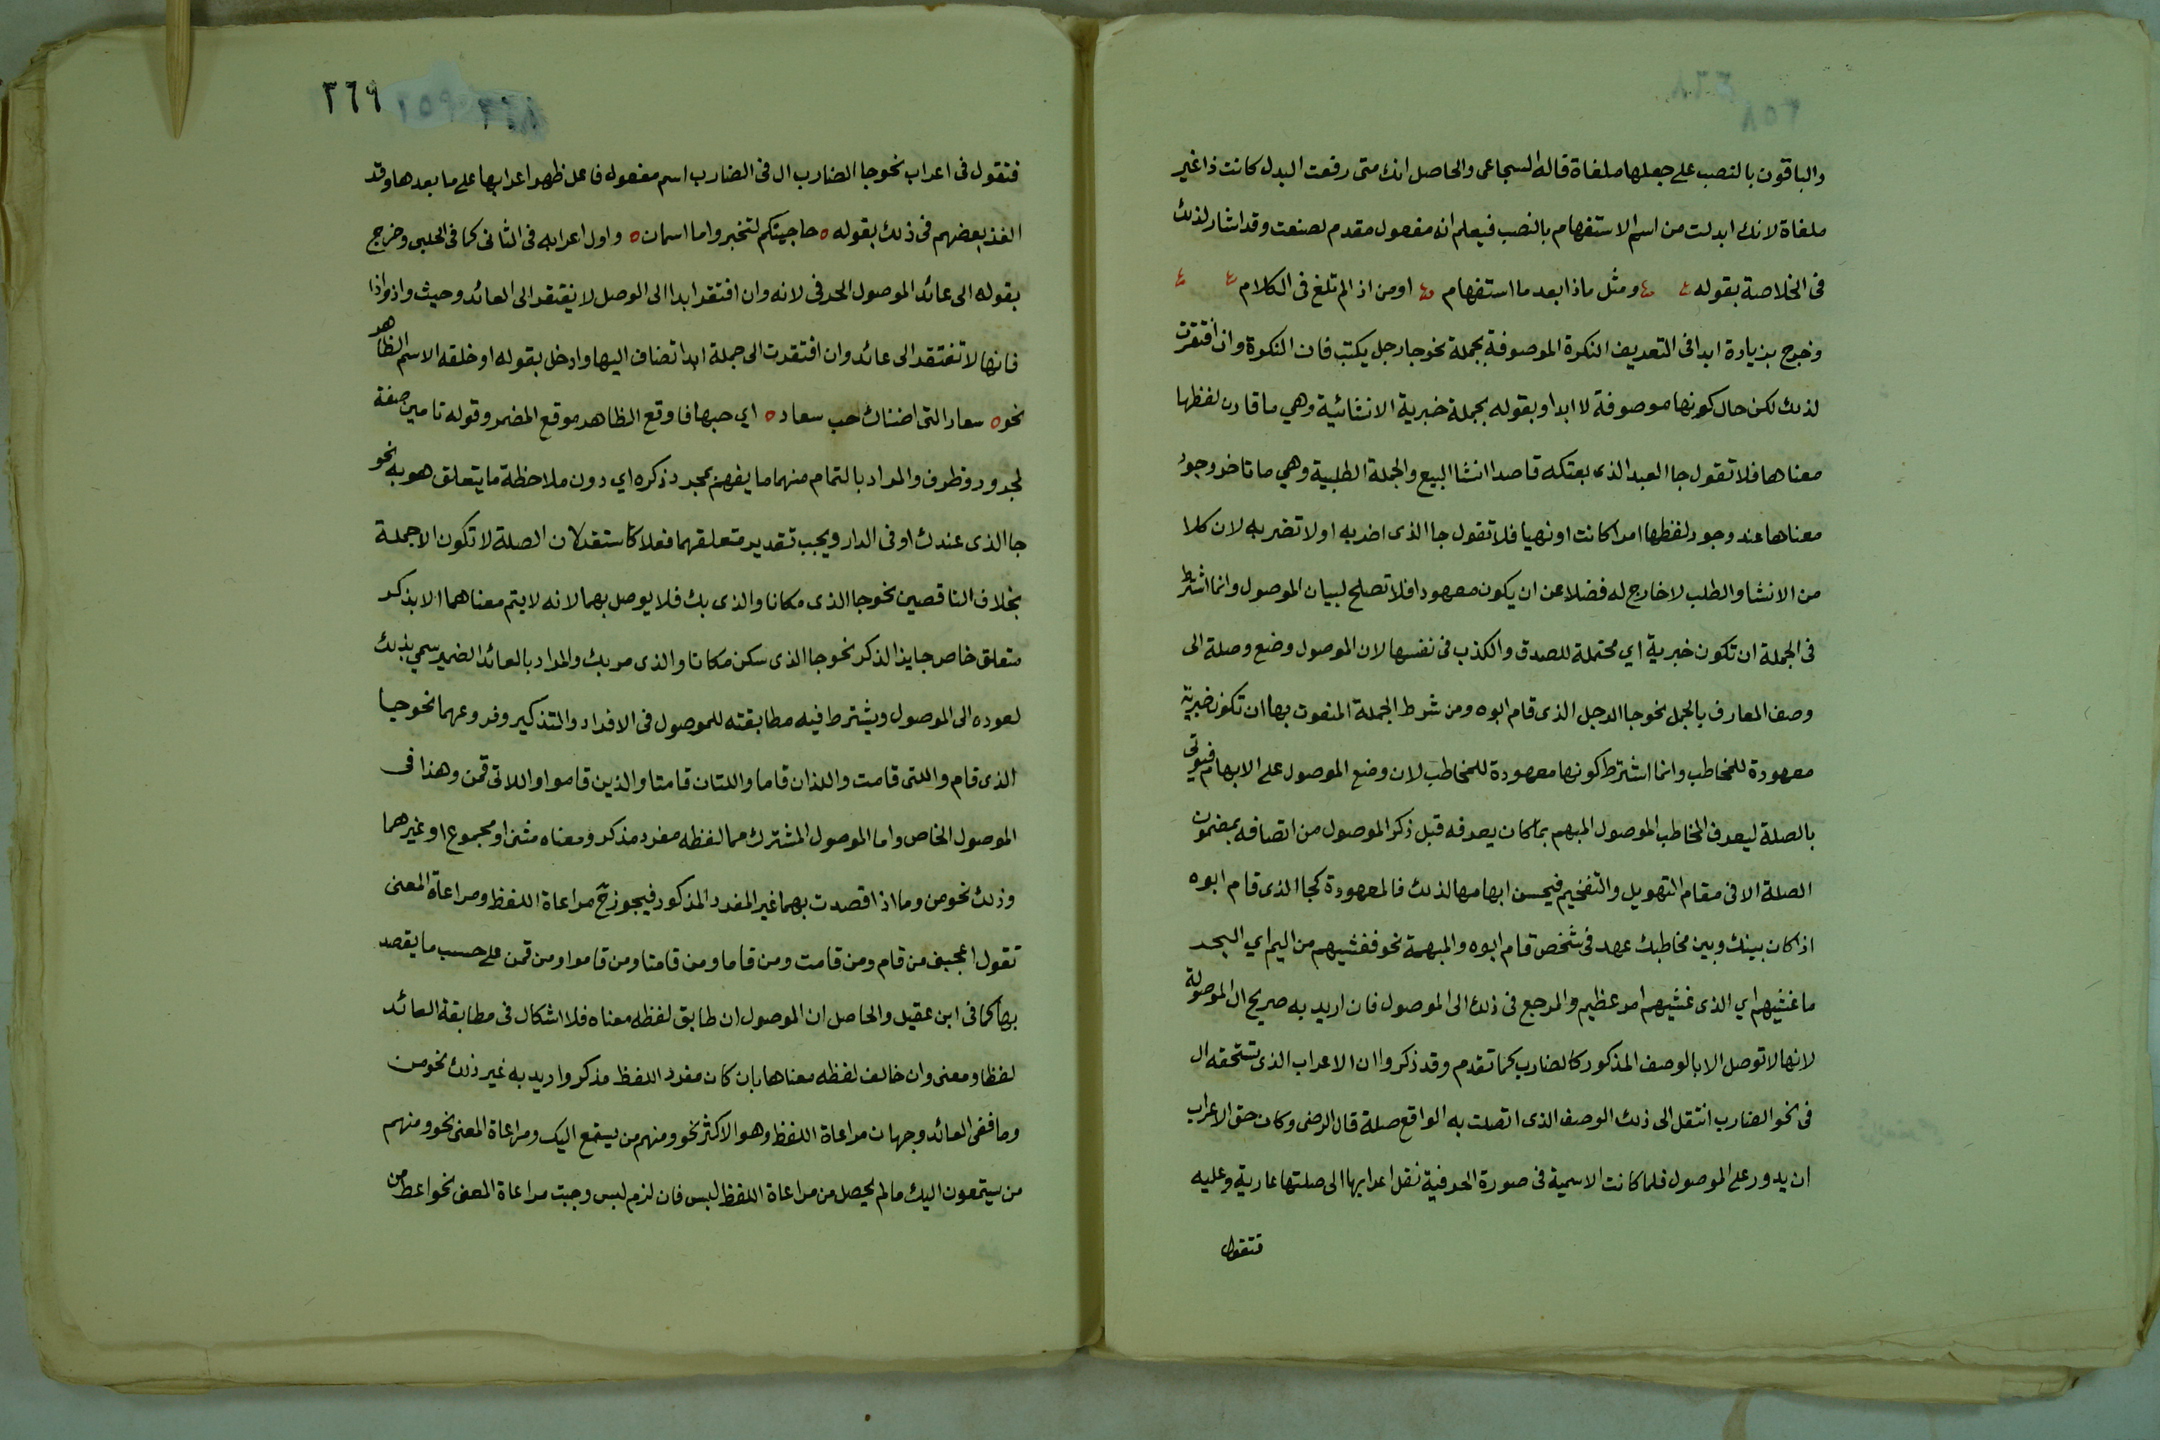 ٣٥٨
والباقون بالنصب على جعلها ملغاة قاله السجاعى والحاصل انك متى رفعت البدل كانت ذا غير
ملغاة لانك ابدلت من اسم الاستفهام بالنصب فيعلم انه مفعول مقدم لصنعت وقد اشار لذلك
فى الخلاصة بقوله ومثل ماذا بعد ما استفهام او من اذا لم تلغ فى الكلام
وخرج بزيادة ابدا فى التعريف النكرة الموصوفة بجملة نحو جا رجل يكتب فان النكرة وان افتقرت
لذلك لكن حال كونها موصوفة لا ابدا وبقوله بجملة خبرية الانشائية وهي ما قارن لفظها
معناها فلا تقول جا العبد الذى بعتكه قاصدا انشا البيع والجملة الطلبية وهي ما تاخر وجود
معناها عند وجود لفظها امرا كانت او نهيا فلا تقول جا الذى اضربه او لا تضربه لان كلا
من الانشا والطلب لا خارج له فضلا عن ان يكون معهودا فلا تصلح لبيان الموصول وانما اشترط
فى الجملة ان تكون خبرية اي محتملة للصدق والكذب فى نفسها لان الموصول وضع وصلة الى
وصف المعارف بالجمل نحو جا الرجل الذى قام ابوه ومن شرط الجملة المنعوت بها ان تكون خبرية
معهودة للمخاطب وانما اشترط كونها معهودة للمخاطب لان وضع الموصول على الابهام فيوتى
بالصلة ليعرف المخاطب الموصول المبهم بما كان يعرفه قبل ذكر الموصول من اتصافه بمضمون
الصلة الا فى مقام التهويل والتفخيم فيحسن ابهامها لذلك فالمعهودة كجا الذى قام ابوه
اذا كان بينك وبين مخاطبك عهد فى شخص قام ابوه والمبهمة نحو فغشيهم من اليم اي البحر
ما غشيهم اي الذى غشيهم امر عظيم والمرجع فى ذلك الى الموصول فان اريد به صريح ال الموصولة
لانها لا توصل الا بالوصف المذكور كالضارب كما تقدم وقد ذكروا ان الاعراب الذى تستحقه ال
فى نحو الضارب انتقل الى ذلك الوصف الذى اتصلت به الواقع صلة قال الرضى وكان حق الاعراب
ان يدور على الموصول فلما كانت الاسمية فى صورة الحرفية نقل اعرابها الى صلتها عارية وعليه
فتقول
٣٦٩
فتقول فى اعراب نحو جا الضارب ال فى الضارب اسم مفعوله فاعل ظهر اعرابها على ما بعدها وقد
الغز بعضهم فى ذلك بقوله حاجيتكم لتخبروا ما اسمان واول اعرابه فى الثانى كما فى الحلبى وخرج
بقوله الى عائد الموصول الحرفى لانه وان افتقر ابدا الى الوصل لا يفتقر الى العائد وحيث واذ واذا
فانها لا تفتقر الى عائد وان افتقرت الى جملة ابدا تضاف اليها وادخل بقوله او خلفه الاسم الظاهر
نحو سعاد التى اضناك حب سعاد اي حبها فاوقع الظاهر موقع المضمر وقوله تامين صفة
لمجرور وظرف والمراد بالتمام منهما ما يفهم بمجرد ذكره اي دون ملاحظة ما يتعلق هو به نحو
جا الذى عندك او فى الدار ويجب تقدير متعلقهما فعلا كاستقر لان الصلة لا تكون الا جملة
بخلاف الناقصين نحو جا الذى مكانا والذى بك فلا يوصل بهما لانه لا يتم معناهما الا بذكر
متعلق خاص جايز الذكر نحو جا الذى سكن مكانا والذى مر بك والمراد بالعائد الضمير سمي بذلك
لعوده الى الموصول ويشترط فيه مطابقته للموصول فى الافراد والتذكير وفروعهما نحو جا
الذى قام واللتى قامت واللذان قاما واللتان قامتا والذين قاموا واللاتى قمن وهذا فى
الموصول الخاص واما الموصول المشترك مما لفظه مفرد مذكر ومعناه مثنى او مجموع او غيرهما
وذلك نحو من وما اذا قصدت بهما غير المفرد المذكور فيجوز ح مراعاة اللفظ ومراعاة المعنى
تقول اعجبنى من قام ومن قامت ومن قاما ومن قامتا ومن قاموا ومن قمن على حسب ما يقصد
بها كما فى ابن عقيل والحاصل ان الموصول ان طابق لفظه معناه فلا اشكال فى مطابقة العائد
لفظا ومعنى وان خالف لفظه معناها بان كان مفرد اللفظ مذكر واريد به غير ذلك نحو من
وما ففى العائد وجهان مراعاة اللفظ وهو الاكثر نحو ومنهم من يستمع اليك ومراعاة المعنى نحو ومنهم
من يستمعون اليك ما لم يحصل من مراعاة اللفظ لبس فان لزم لبس وجبت مراعاة المعنى نحو اعط من